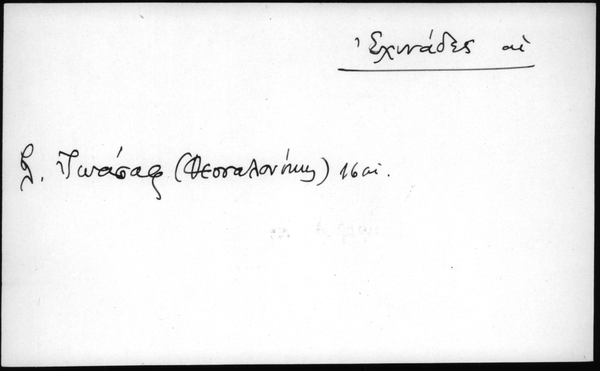 Ἐχινάδες αἱ
Ἰωάσαφ (Θεσσαλονίκης) 16 αἰ.